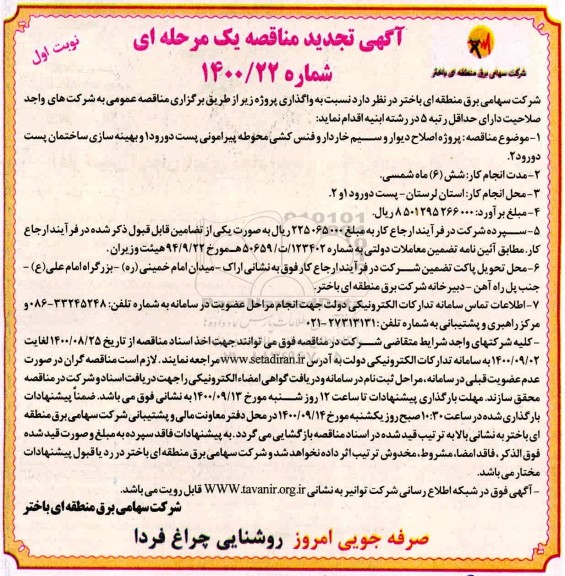 آگهی تجدید مناقصه یک مرحله ای
شماره ۱۴۰۰/۲۲
نوبت اول
شرکت سهامی برق منطقه ای باختر
شرکت سهامی برق منطقه ای باختر در نظر دارد نسبت به واگذاری پروژه زیر از طریق برگزاری مناقصه عمومی به شرکت های واجد
صلاحیت دارای حداقل رتبه ۵ در رشته ابنیه اقدام نماید:
۱-موضوع مناقصه: پروژه اصلاح دیوار و سیم خاردار و فنس کشی محوطه پیرامونی پست دورود۱ و بهینه سازی ساختمان پست
دورود۲.
۲-مدت انجام کار: شش (۶) ماه شمسی.
۳- محل انجام کار: استان لرستان - پست دورود ۱ و ۲.
۴- مبلغ برآورد: ۲۶۶۰۰۰ ۲۹۵ ۸۵۰۱ ریال.
۵- سپرده شرکت در فرآیند ارجاع کار به مبلغ ۲۲۵۰۶۵۰۰۰ ریال به صورت یکی از تضامین قابل قبول ذکر شده در فرآیند ارجاع
کار. مطابق آئین نامه تضمین معاملات دولتی به شماره ۱۲۳۴۰۲/ت/۵۰۶۵۹هـ مورخ ۹۴/۹/۲۲ هیئت وزیران.
۶-محل تحویل پاکت تضمین شرکت در فرآیند ارجاع کار فوق به نشانی اراک -میدان امام خمینی (ره) -بزرگراه امام علی(ع) -
جنب پل راه آهن - دبیرخانه شرکت برق منطقه ای باختر.
۷-اطلاعات تماس سامانه تدارکات الکترونیکی دولت جهت انجام مراحل عضویت در سامانه به شماره تلفن: ۳۳۲۴۵۲۴۸-۰۸۶ و
مرکز راهبری و پشتیبانی به شماره تلفن: ۲۷۳۱۳۱۳۱-۰۲۱
-کلیه شرکتهای واجد شرایط متقاضی شرکت در مناقصه فوق می توانند جهت اخذ اسناد مناقصه از تاریخ ۱۴۰۰/۰۸/۲۵ لغایت
۱۴۰۰/۰۹/۰۲ به سامانه تدارکات الکترونیکی دولت به آدرس www.setadiran.ir مراجعه نمایند. لازم است مناقصه گران در صورت
عدم عضویت قبلی در سامانه، مراحل ثبت نام در سامانه و دریافت گواهی امضاء الکترونیکی را جهت دریافت اسناد و شرکت در مناقصه
محقق سازند. مهلت بارگذاری پیشنهادات تا ساعت ۱۲ روز شنبه مورخ ۱۴۰۰/۰۹/۱۳ به نشانی فوق می باشد. ضمناً پیشنهادات
بارگذاری شده در ساعت ۱۰:۳۰ صبح روز یکشنبه مورخ ۱۴۰۰/۰۹/۱۴ در محل دفتر معاونت مالی و پشتیبانی شرکت سهامی برق منطقه
ای باختر به نشانی بالا به ترتیب قید شده در اسناد مناقصه بازگشایی می گردد. به پیشنهادات فاقد سپرده به مبلغ و صورت قید شده
فوق الذکر، فاقد امضا، مشروط، مخدوش ترتیب اثر داده نخواهد شد و شرکت سهامی برق منطقه ای باختر در رد یا قبول پیشنهادات
مختار می باشد.
-آگهی فوق در شبکه اطلاع رسانی شرکت توانیر به نشانی WWW.tavanir.org.ir قابل رویت می باشد.
شرکت سهامی برق منطقه ای باختر
صرفه جویی امروز روشنایی چراغ فردا